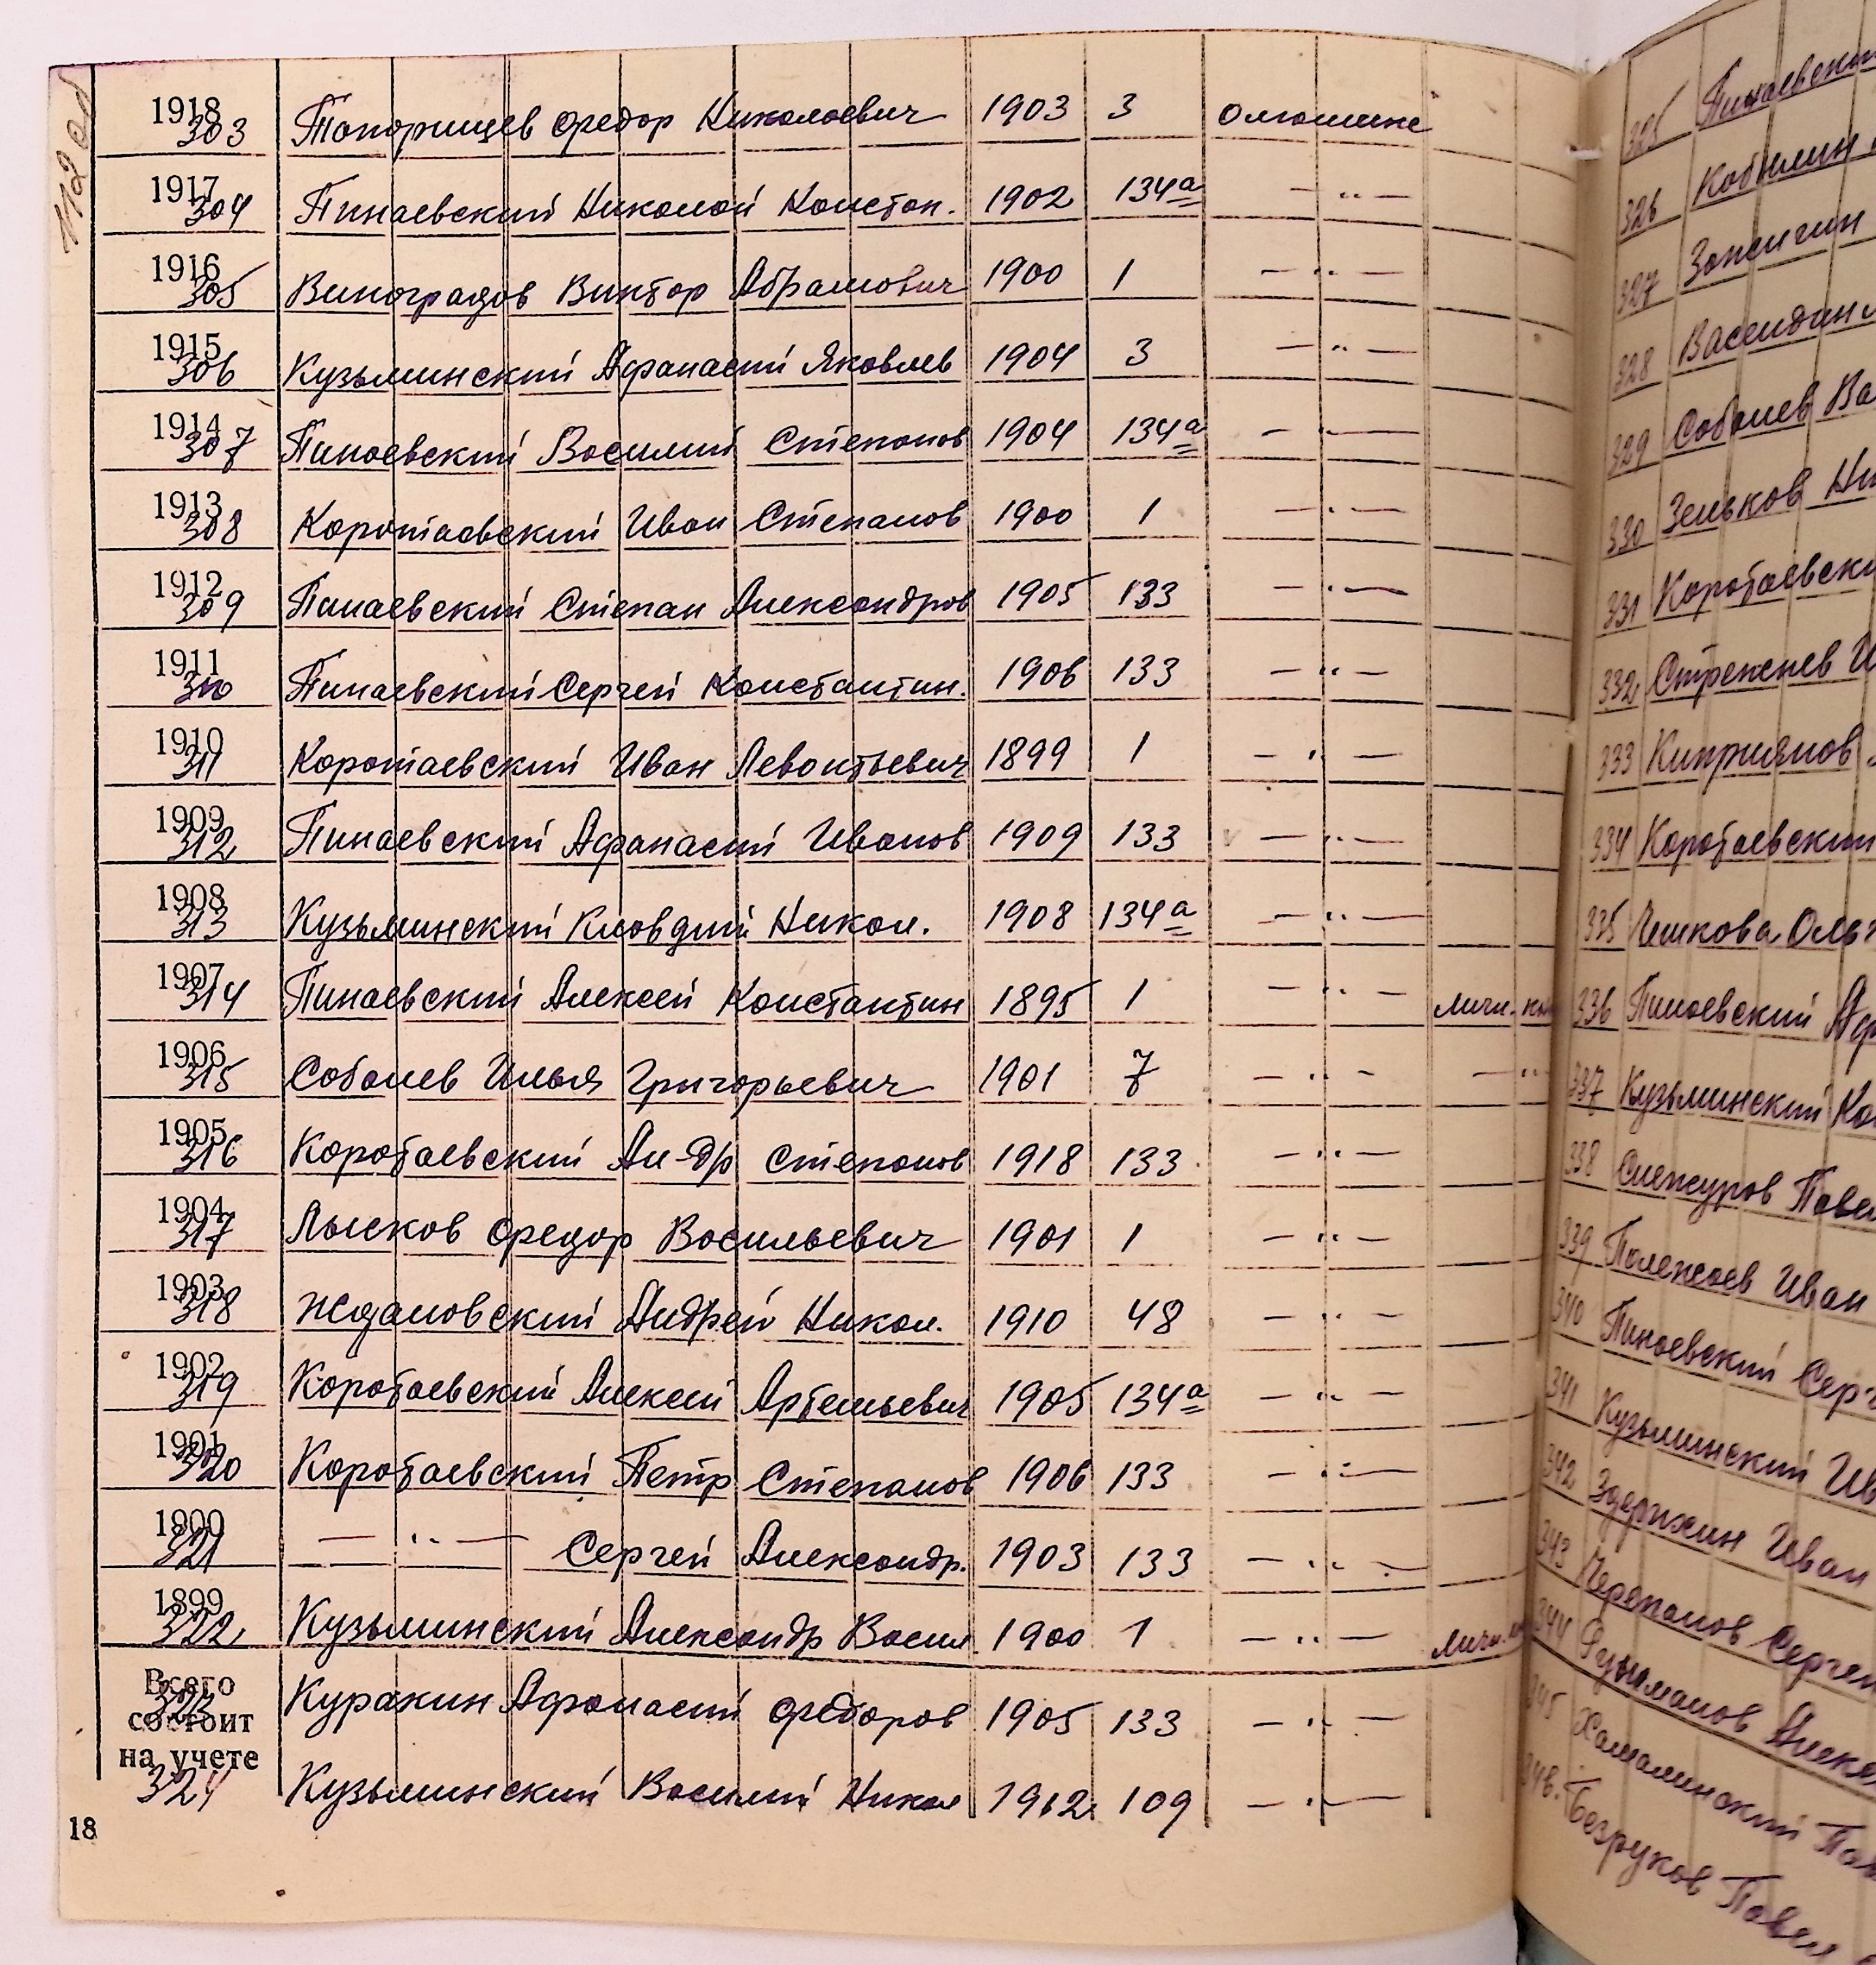 112 об
1918 303 Топорищев Федор Николаевич 1903 3
1917 304 Пинаевский Николай Констан. 1902 134а — " —
1916 305 Виноградов Виктор Абрамович 1900 1 — " —
1915 306 Кузьминский Афанасий Яковлев 1904 3 — " —
1914 307 Пинаевский Василий Степанов 1904 134а — " —
1913 308 Коротаевский Иван Степанов 1900 1 — " —
1912 309 Пинаевский Степан Александров 1905 133 — " —
1911 310 Пинаевский Сергей Константин. 1906 133 — " —
1910 311 Коротаевский Иван Левонтьевич 1899 1 — " —
1909 312 Пинаевский Афанасий Иванов 1909 133 — " —
1908 313 Кузьминский Клавдий Никол. 1908 134а — " —
1907 314 Пинаевский Алексей Константин 1895 1 — " — личн.
1906 315 Соболев Илья Григорьевич 1901 7 — " — — "
1905 316 Коротаевский Ал-др Степанов 1918 133 — " —
1904 317 Лысков Федор Васильевич 1901 1 — " —
1903 318 Ждановский Андрей Никол. 1910 48 — " —
1902 319 Коротаевский Алексей Артемьевич 1905 134а — " —
1901 320 Коротаевский Петр Степанов 1906 133 — " —
1900 321 — " — Сергей Александр. 1903 133 — " —
1899 322 Кузьминский Александр Васил 1900 1 — " — личн.
Всего состоит на учете
323 Куракин Афанасий Федоров 1905 133 — " —
324 Кузьминский Василий Никол 1912 109 — " —
18
325 Пинаевский
326 Кобылин
327
328
329 Соболев Ва
330 Зеньков Ни
331 Коротаевски
332 Стрекнев И
333 Киприянов
334 Коротаевский
335 Чешкова Ольг
336 Пинаевский Аф
337 Кузьминский Ко
338 Слежуров Павел
339 Полежаев Иван
340 Пинаевский Серг
341 Кузьминский Ив
342 Здерихин Иван
343 Черепанов Сергей
344 Алек
345 Па
346. Безруков Павел